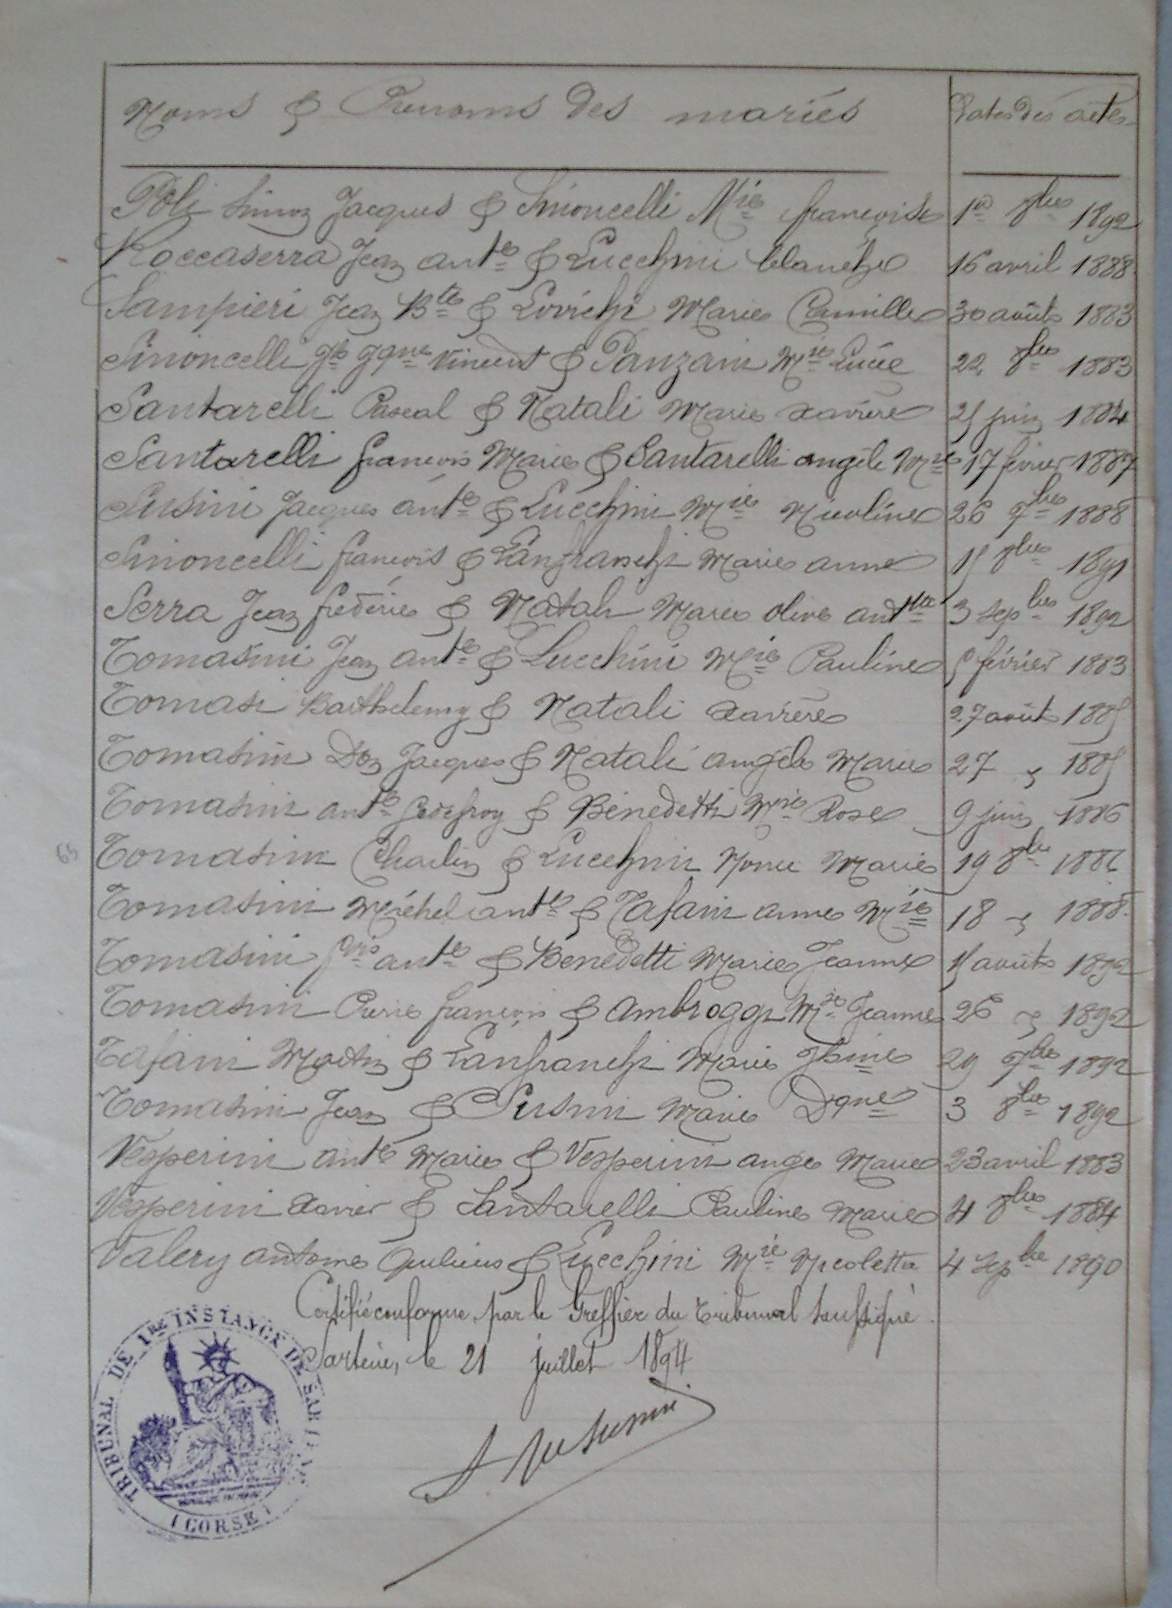 Noms & Prenoms des mariés Dates des actes
Poli Simon Jacques & Simoncelli Mie françoise 1er 8bre 1892
Roccaserra Jean ante & Lucchini blanche 16 avril 1888
Sampieri Jean Bte & Lovichi Marie Camille 30 août 1883
Simoncelli Vincent & Panzani Mie Lucie 22 8bre 1883
Santarelli Pascal & Natali Marie xavière 25 juin 1884
Santarelli françois Marie & Santarelli angèle Mie 17 février 1887
Susini Jacques ante & Lucchini Mie Nicoline 26 7bre 1888
Simoncelli françois & Lanfranchi Marie anne 15 8bre 1891
Serra Jean frédéric & Natali Marie olive andtte 3 Sepbre 1892
Tomasini Jean ante & Lucchini Mie Pauline 5 février 1883
Tomasi Barthelemy & Natali xavière 27 août 1885
Tomasini Don Jacques & Natali angèle Marie 27 " 1885
Tomasini ante Godefroy & Bénédetti Mie Rose 9 juin 1886
65 Tomasini Charles & Lucchini Marie 19 8bre 1886
Tomasini Michel ante & Tafani anne Mie 18 " 1888
Tomasini fois ante & Benedetti Marie Jeanne 15 août 1892
Tomasini Pierre françois & ambroggi Mie Jeanne 26 " 1892
Tafani Martin & Lanfranchi Marie 29 7bre 1892
Tomasini Jean & Susini Marie Dque 3 8bre 1892
Vesperini ante Marie & Vesperini ange Marie 23 avril 1883
Vesperini xavier & Santarelli Pauline Marie 4 8bre 1884
Valery antoine & Lucchini Mie Nicoletta 4 Sepbre 1890
Certifié conforme par le Greffier du Tribunal soussigné.
Sartène, le 21 juillet 1894
TRIBUNAL DE 1RE INSTANCE DE SARTENE
(CORSE)